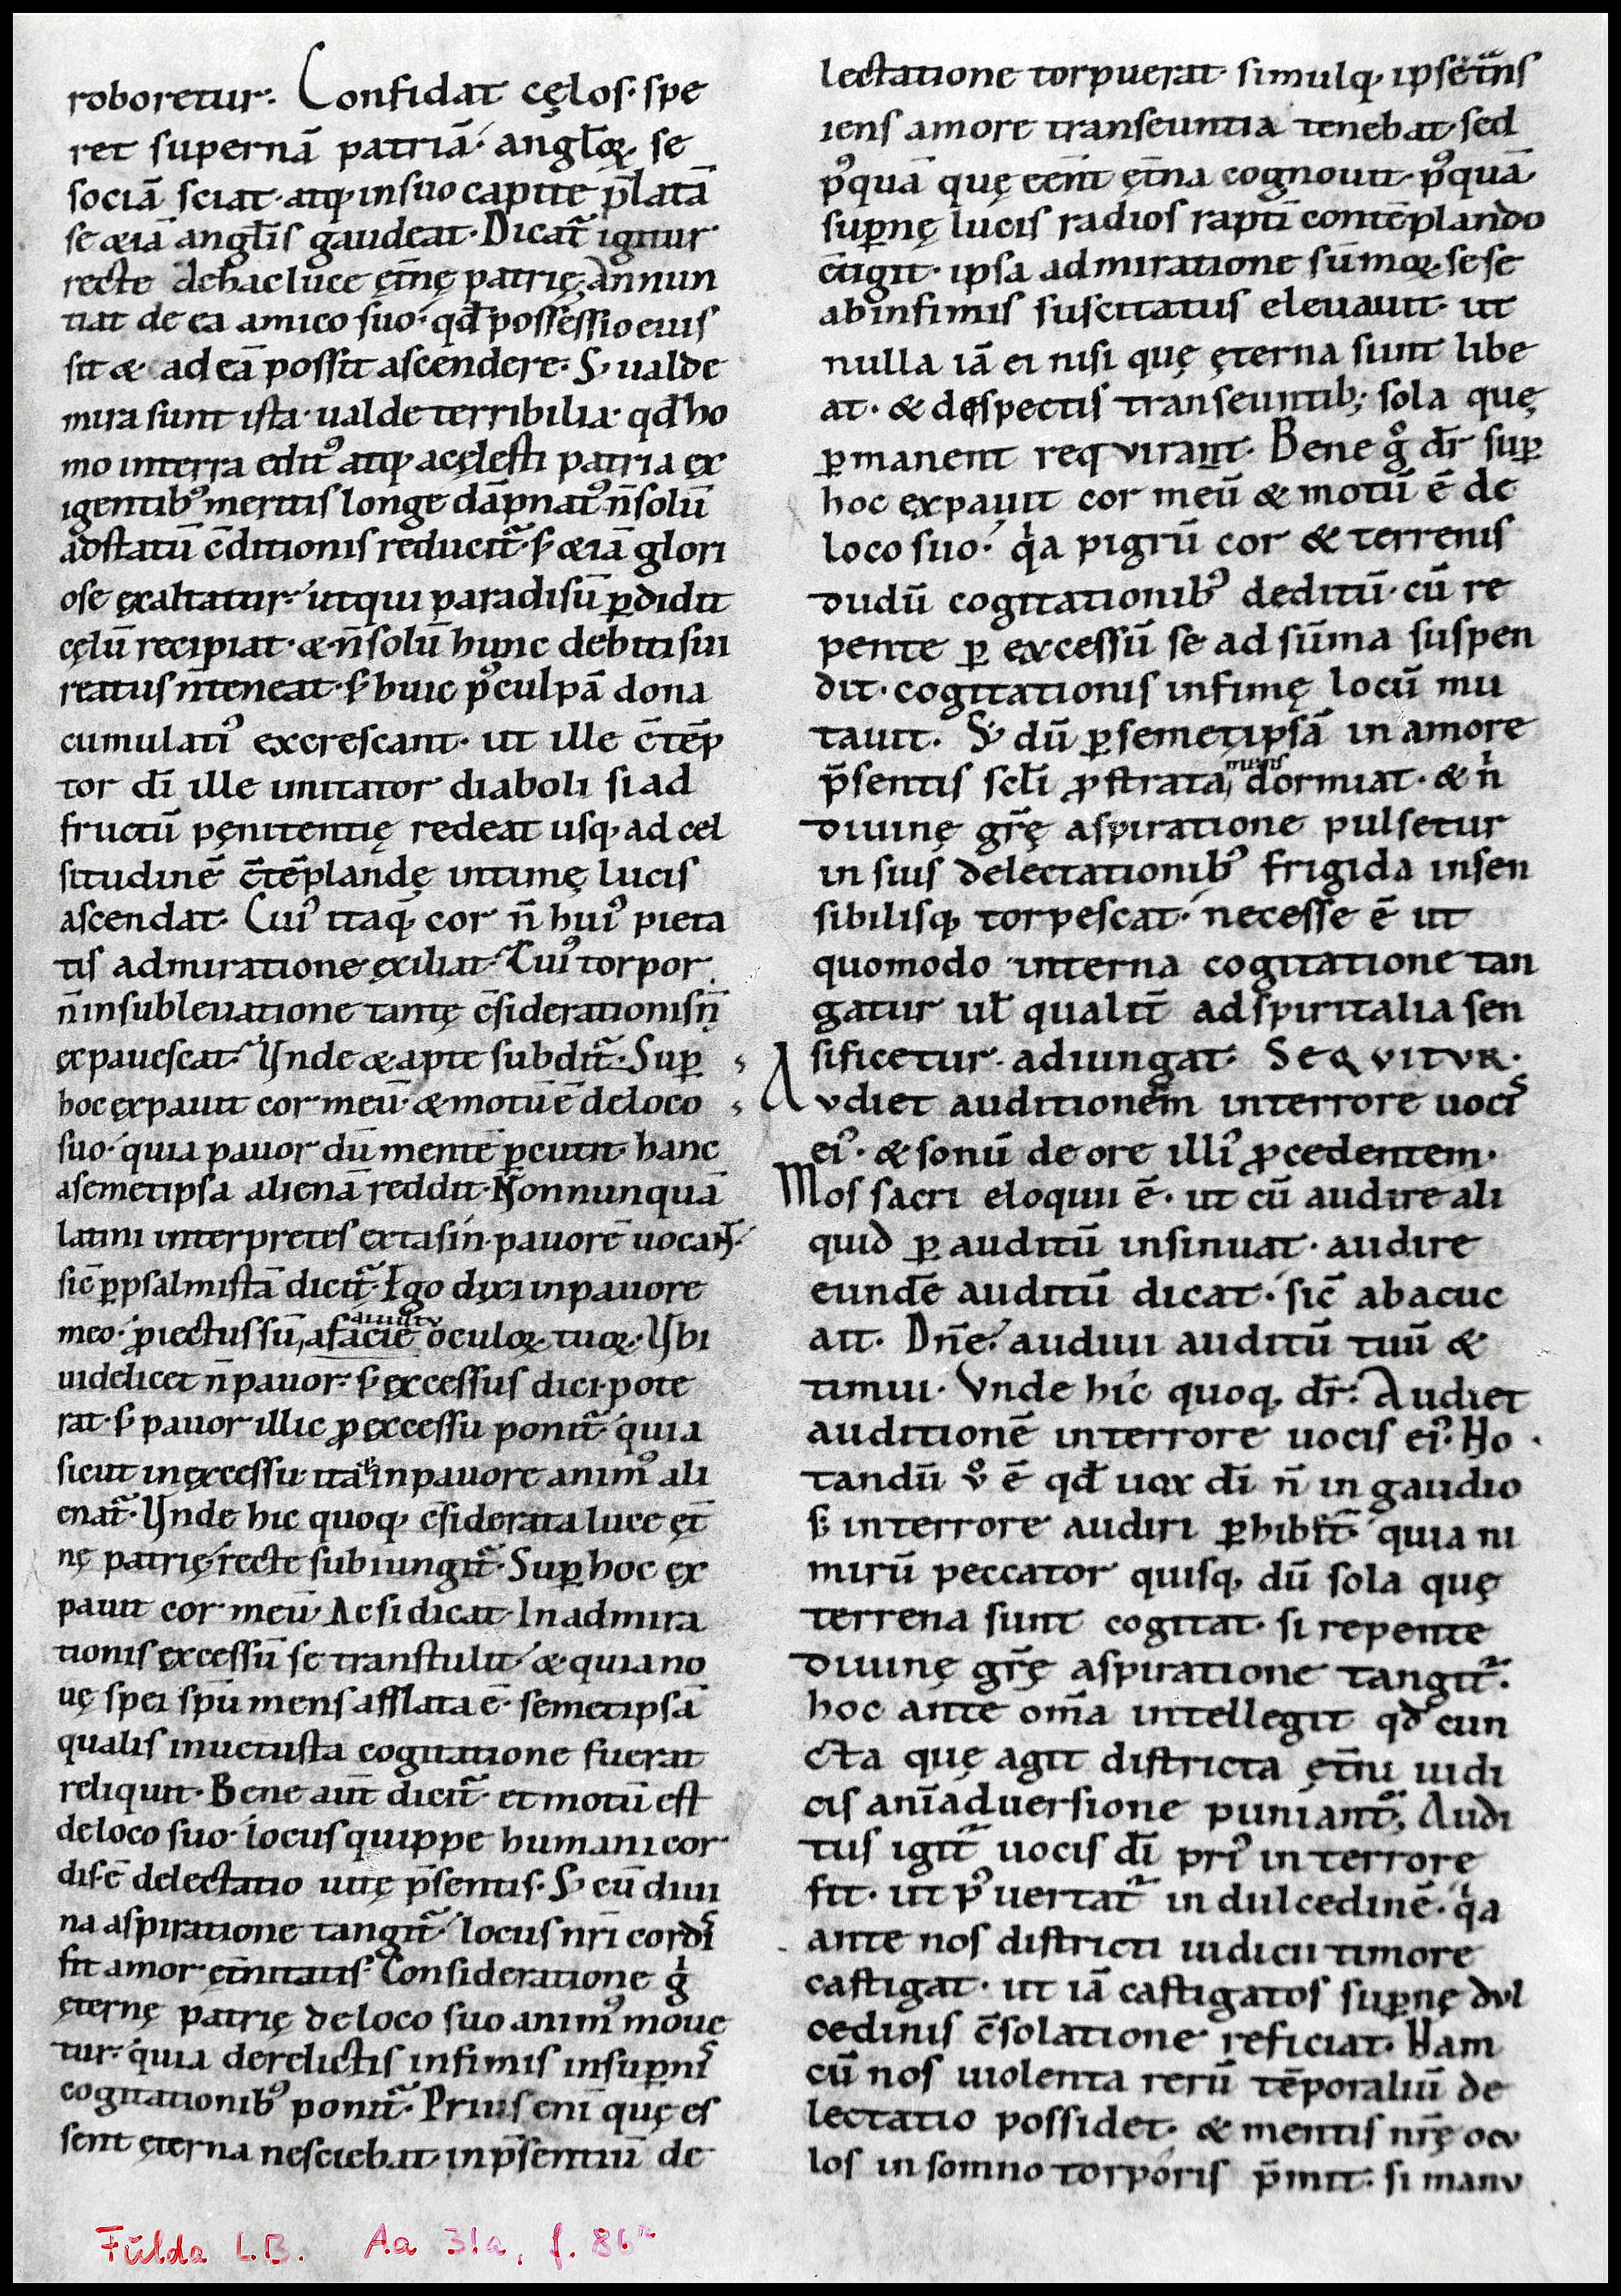 roboretur. Confidat cęlos. spe
ret supernā patriā. anglo̅ꝝ se
sociā sciat. atq; in suo capite p̄latā
se & iā angl̄is gaudeat. Dicat̄ igitur
recte de hac luce ęt̄nę patrię; Annun
tiat de ea amico suo. qd̄ possessio eius
sit &. ad eā possit ascendere. S; ualde
mira sunt ista. ualde terribilia. qd̄ ho
mo in terra edit᷒ atq; a cęlesti patria ex
igentib᷒ meritis longe dāpnat᷒. n̄ solū
ad statū c̄ditionis reducit̄. s; & iā glori
ose exaltatur. ut qui paradisū ꝑdidit
cęlū recipiat. & n̄ solū hunc debiti sui
reatus n̄ teneat. s; huic p᷒ culpā dona
cumulati᷒ excrescant. ut ille c̄tēp
tor dī ille imitator diaboli si ad
fructū pęnitentię redeat usq; ad cel
situdinē c̄tēplandę intimę lucis
ascendat. Cui᷒ itaq; cor n̄ hui᷒ pieta
tis admiratione exiliat. Cui᷒ torpor
n̄ in subleuatione tantę c̄siderationis n̄
expauescat. Vnde & apte subdit̄. Suꝑ
hoc expauit cor meū. & motū ē de loco
suo. quia pauor dū mentē ꝑcutit. hanc
a semetipsa alienā reddit. Nonnunquā
latini interpretes extasin. pauorē uocaNT.
sic̄ ꝑ psalmistā dicit̄. Ego dixi in pauore
meo. ꝓiectus sū, a facie oculoꝝ tuoꝝ. Vbi
uidelicet n̄ pauor. s; excessus dici pote
rat. s; pauor illic ꝓ excessu ponit̄. quia
sicut in excessu ita & in pauore anim᷒ ali
enat̄. Vnde hic quoq; c̄siderata luce ęt̄
nę patrię. recte subiungit̄. Suꝑ hoc ex
pauit cor meū. Ac si dicat. In admira
tionis excessū se transtulit. & quia no
uę spei sp̄u mens afflata ē. semetipsā
qualis in uetusta cogitatione fuerat
reliquit. Bene aūt dicit̄. et motū est
de loco suo. locus quippe humani cor
dis ē delectatio uitę p̄sentis. S; cū diui
na aspiratione tangit̄. locus nr̄i cordis
fit amor ęt̄nitatis. Consideratione g̊
ęternę patrię de loco suo anim᷒ moue
tur. quia derelictis infimis in suꝑnis
cogitationib᷒ ponit̄. Prius enī quę es
sent ęterna nesciebat. in p̄sentiū de
lectatione torpuerat. simulq; ipse t̄ns
iens amore transeuntia tenebat. sed
p᷒quā quę eēnt ęt̄na cognouit. p᷒quā
suꝑnę lucis radios raptī contēplando
c̄tigit. ipsa admiratione sūmoꝝ. sese
ab infimis suscitatus eleuauit. ut
nulla iā ei nisi quę ęterna sunt libe
at. & despectis transeuntib; sola quę
ꝑmanent requirant. Bene g̊ dr̄ suꝑ
hoc expauit cor meū & motū ē de
loco suo. qͥa pigrū cor & terrenis
dudū cogitationib᷒ deditū. cū re
pente ꝑ excessū se ad sūma suspen
dit. cogitationis infimę locū mu
tauit. S; dū ꝑ semetipsā in amore
mens
p̄sentis scl̄i ꝓstrata, dormiat. & nͥ
diuinę gr̄ę aspiratione pulsetur
in suis delectationib᷒ frigida insen
sibilisq; torpescat. necesse ē ut
quomodo interna cogitatione tan
gatur ul̄ qualit̄ ad spiritalia sen
sificetur. adiungat. SEQVITVR.
Audiet auditionem in terrore uocis
ei᷒. & sonū de ore illi᷒ ꝓcedentem.
Mos sacri eloquii ē. ut cū audire ali
quid ꝑ auditū insinuat. audire
eundē auditū dicat. sic̄ abacuc
ait. Dn̄e. audiui auditū tuū &
timui. Vnde hic quoq; dr̄. Audiet
auditionē in terrore uocis ei᷒. No
tandū ů ē qd̄ uox dī n̄ in gaudio
s; in terrore audiri ꝑhibet̄. quia ni
mirū peccator quisq; dū sola quę
terrena sunt cogitat. si repente
diuinę gr̄ę aspiratione tangit̄.
hoc ante om̄a intellegit qd̄ cun
cta quę agit districta ęt̄ni iudi
cis anīaduersione puniant̄; Audi
tus igit̄ uocis dī pri᷒ in terrore
fit. ut p᷒ uertat̄ in dulcedinē. qͥa
ante nos districti iudicii timore
castigat. ut iā castigatos suꝑnę dul
cedinis c̄solatione reficiat. Nam
cū nos uiolenta rerū tēporaliū de
lectatio possidet. & mentis nr̄ę ocu
los in somno torporis p̄mit. si manu
Fulda L.B. Aa 31a, f. 86r